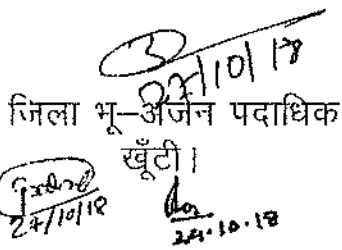 3
27/10/18
जिला भू-अर्जन पदाधिक
खूँटी।
27/10/18
24.10.18